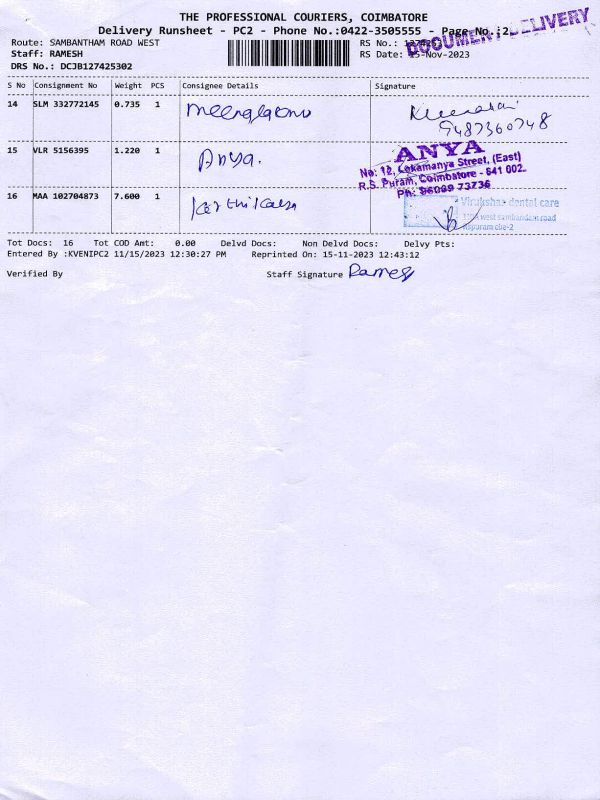 THE PROFESSIONAL COURIERS, COIMBATORE
Delivery Runsheet - PC2 - Phone No.:0422-3505555 - Page No.:2
DOCUMENT DELIVERY
Route: SAMBANTHAM ROAD WEST
RS No.:
Staff: RAMESH
RS Date: 15-Nov-2023
DRS No.: DCJB127425302
S No Consignment No Weight PCS Consignee Details Signature
14 SLM 332772145 0.735 1
9487360748
15 VLR 5156395 1.220 1 Anya.
ANYA
No: 12, Lokamanya Street, (East)
R.S. Puram, Coimbatore - 641 002.
Ph: 96009 73736
16 MAA 102704873 7.600 1
Viruksha dental care
west sambandam road
Tot Docs: 16 Tot COD Amt: 0.00 Delvd Docs: Non Delvd Docs: Delvy Pts:
Entered By :KVENIPC2 11/15/2023 12:30:27 PM Reprinted On: 15-11-2023 12:43:12
Verified By Staff Signature Ramesh